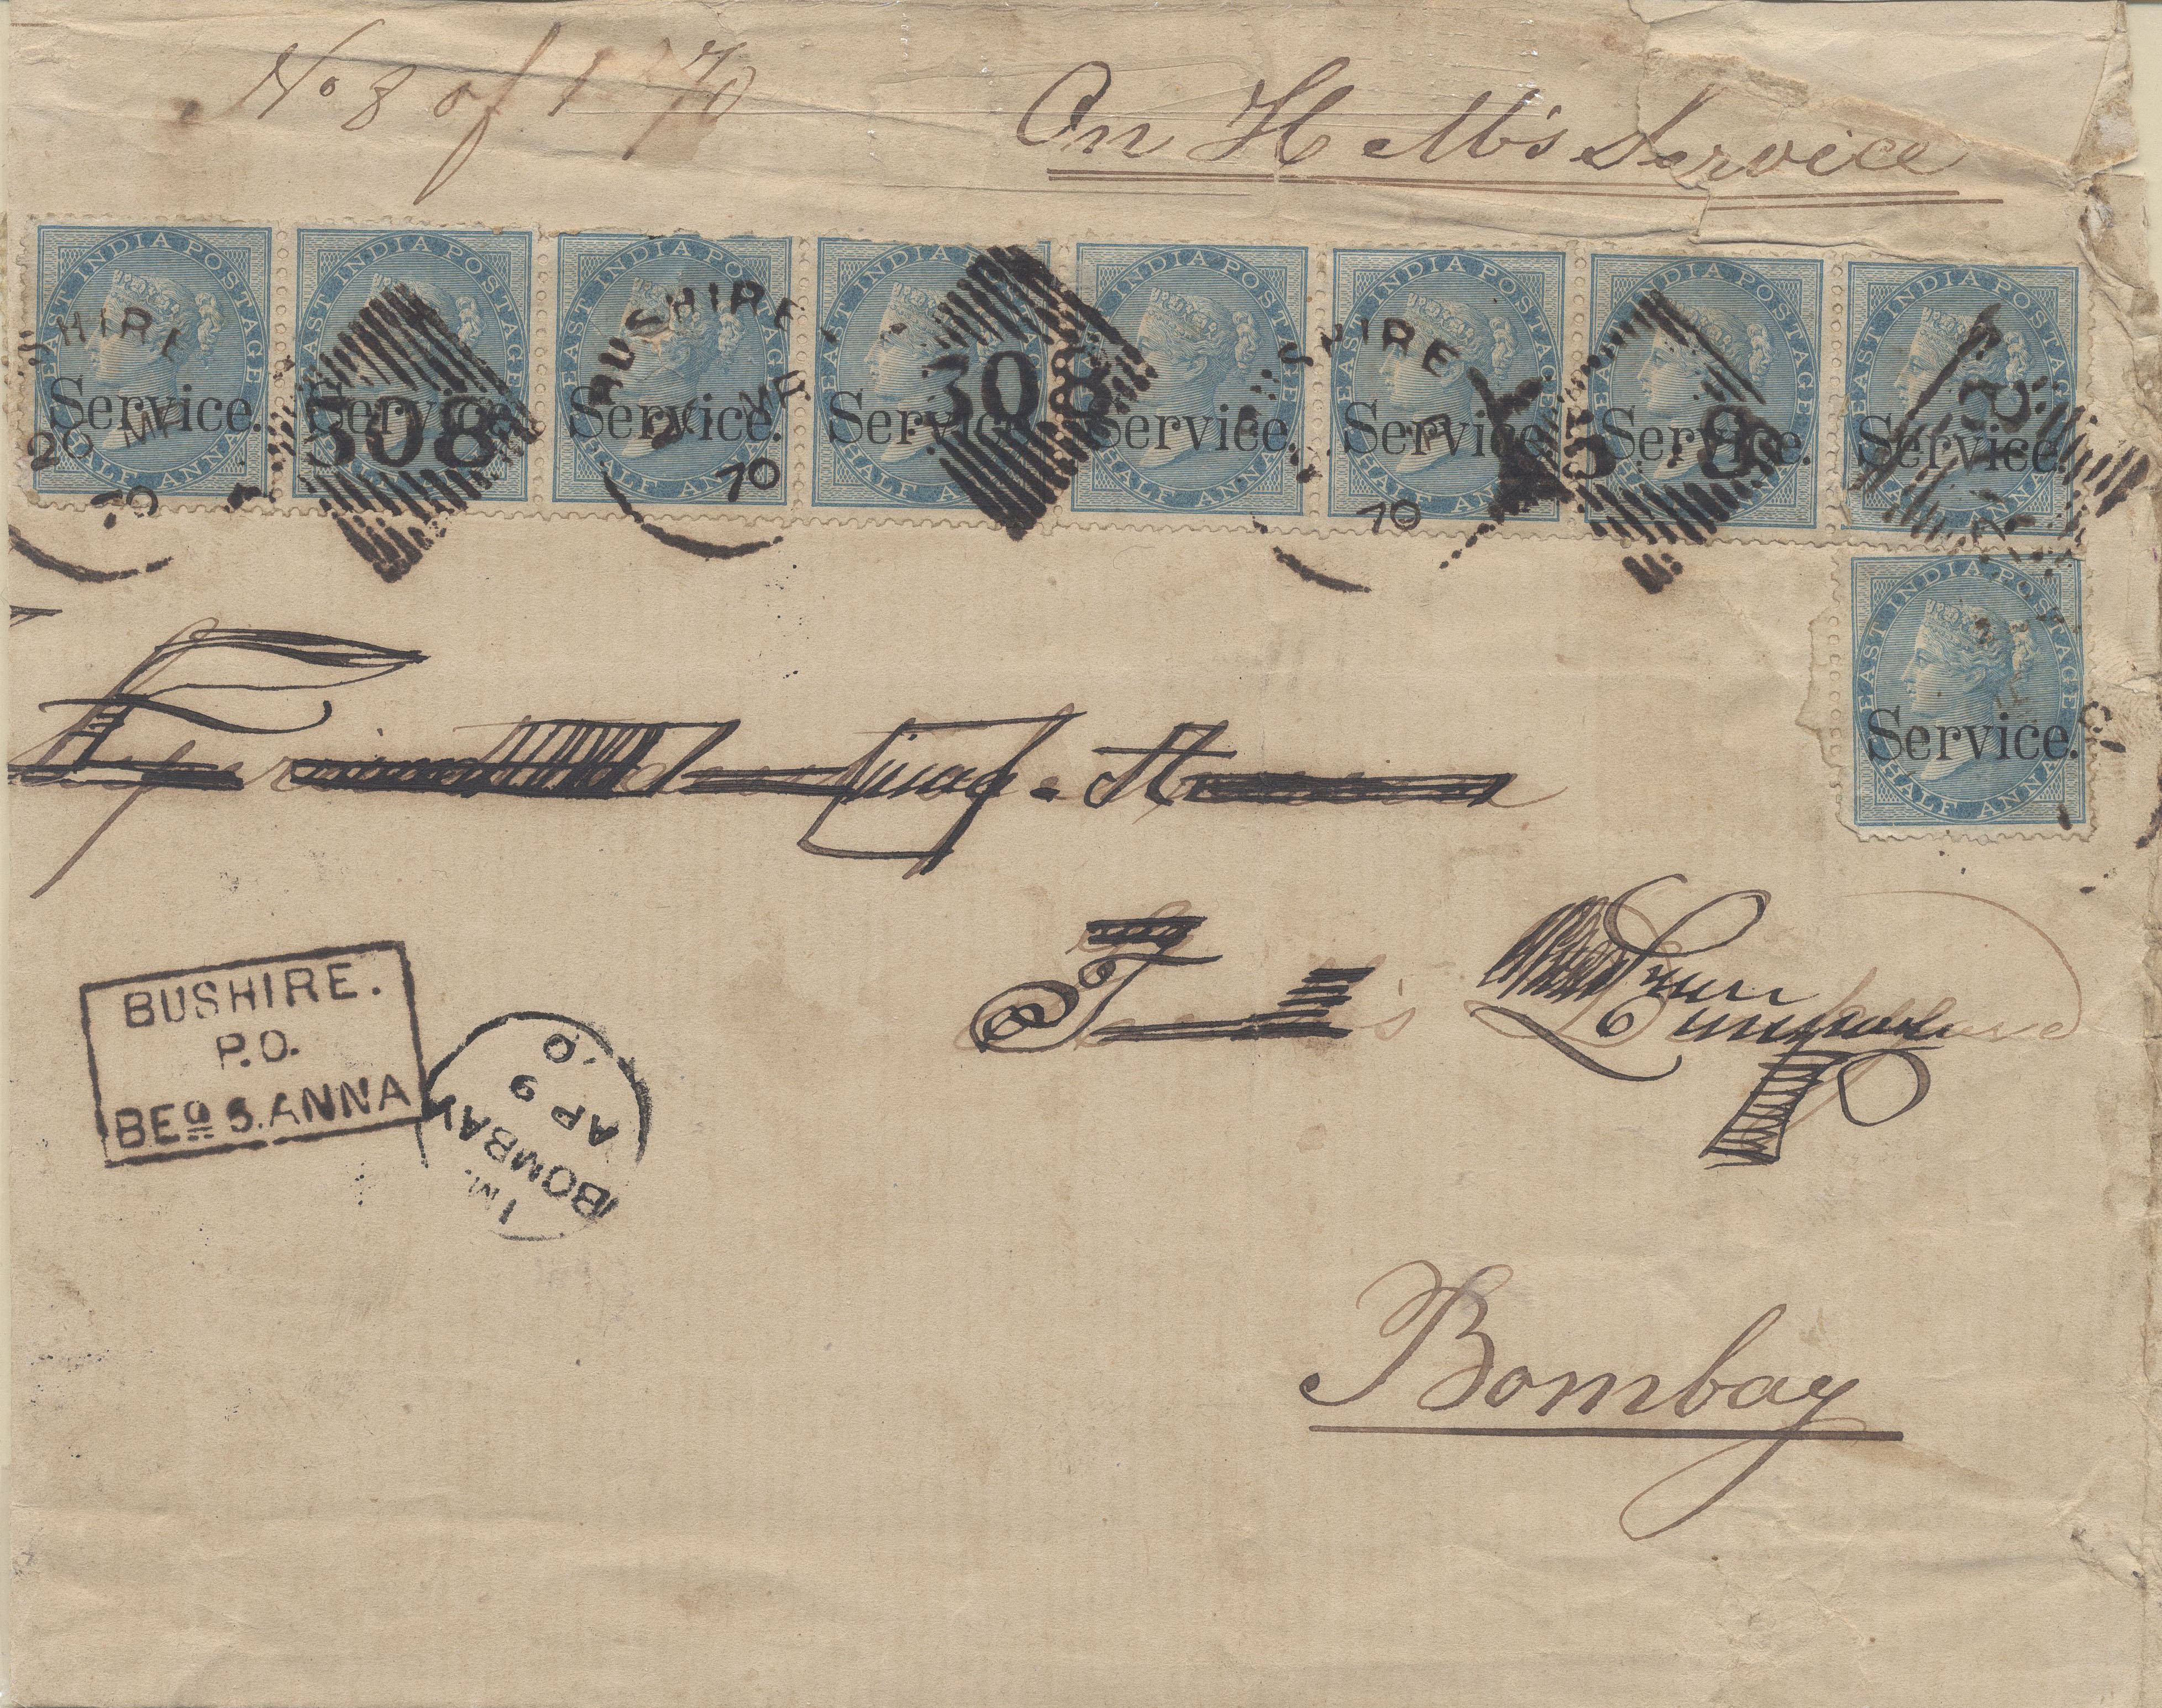 No 8 of 1870
On H M's Service
EAST INDIA POSTAGE Service. HALF ANNA
EAST INDIA POSTAGE Service. HALF ANNA
EAST INDIA POSTAGE Service. HALF ANNA
EAST INDIA POSTAGE Service. HALF ANNA
EAST INDIA POSTAGE Service. HALF ANNA
EAST INDIA POSTAGE Service. HALF ANNA
EAST INDIA POSTAGE Service. HALF ANNA
EAST INDIA POSTAGE Service. HALF ANNA
SHIRE
20 MR
70
308
BUSHIRE
MR
70
308
SHIRE
70
3 8
EAST INDIA POSTAGE
Service.
HALF ANNA
BUSHIRE.
P.O.
BEG 3. ANNA
1 M.
BOMBAY
AP 9
70
Bombay